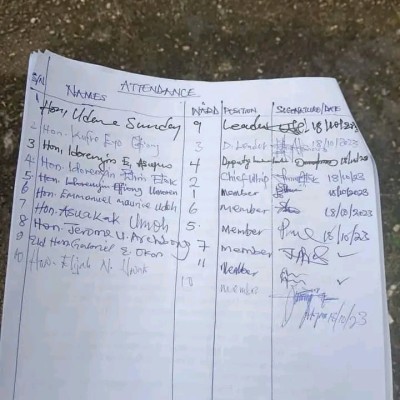 ATTENDANCE
S/N NAMES WARD POSITION SIGNATURE/DATE
1 Hon. Udeme Sunday 9 Leader 18/10/23
2 Hon. Kufre Eyo 3 D. Leader 18/10/23
3 Hon. Idorenyin E. 4 Deputy 18/10/23
4 Hon. Idorenyin 2 Chief Whip 18/10/23
5 Hon. Effiong 1 Member 18/10/23
6 Hon. Emmanuel Maurice Udoh 6 Member 18/10/23
7 Hon. Asuakak Umoh 5. Member 18/10/23
8 Hon. Jerome U. Archibong 7 Member
9 Eld Hon. Gabriel E. Okon 11 Member
10 Hon. Elijah N. 10 Member 18/10/23